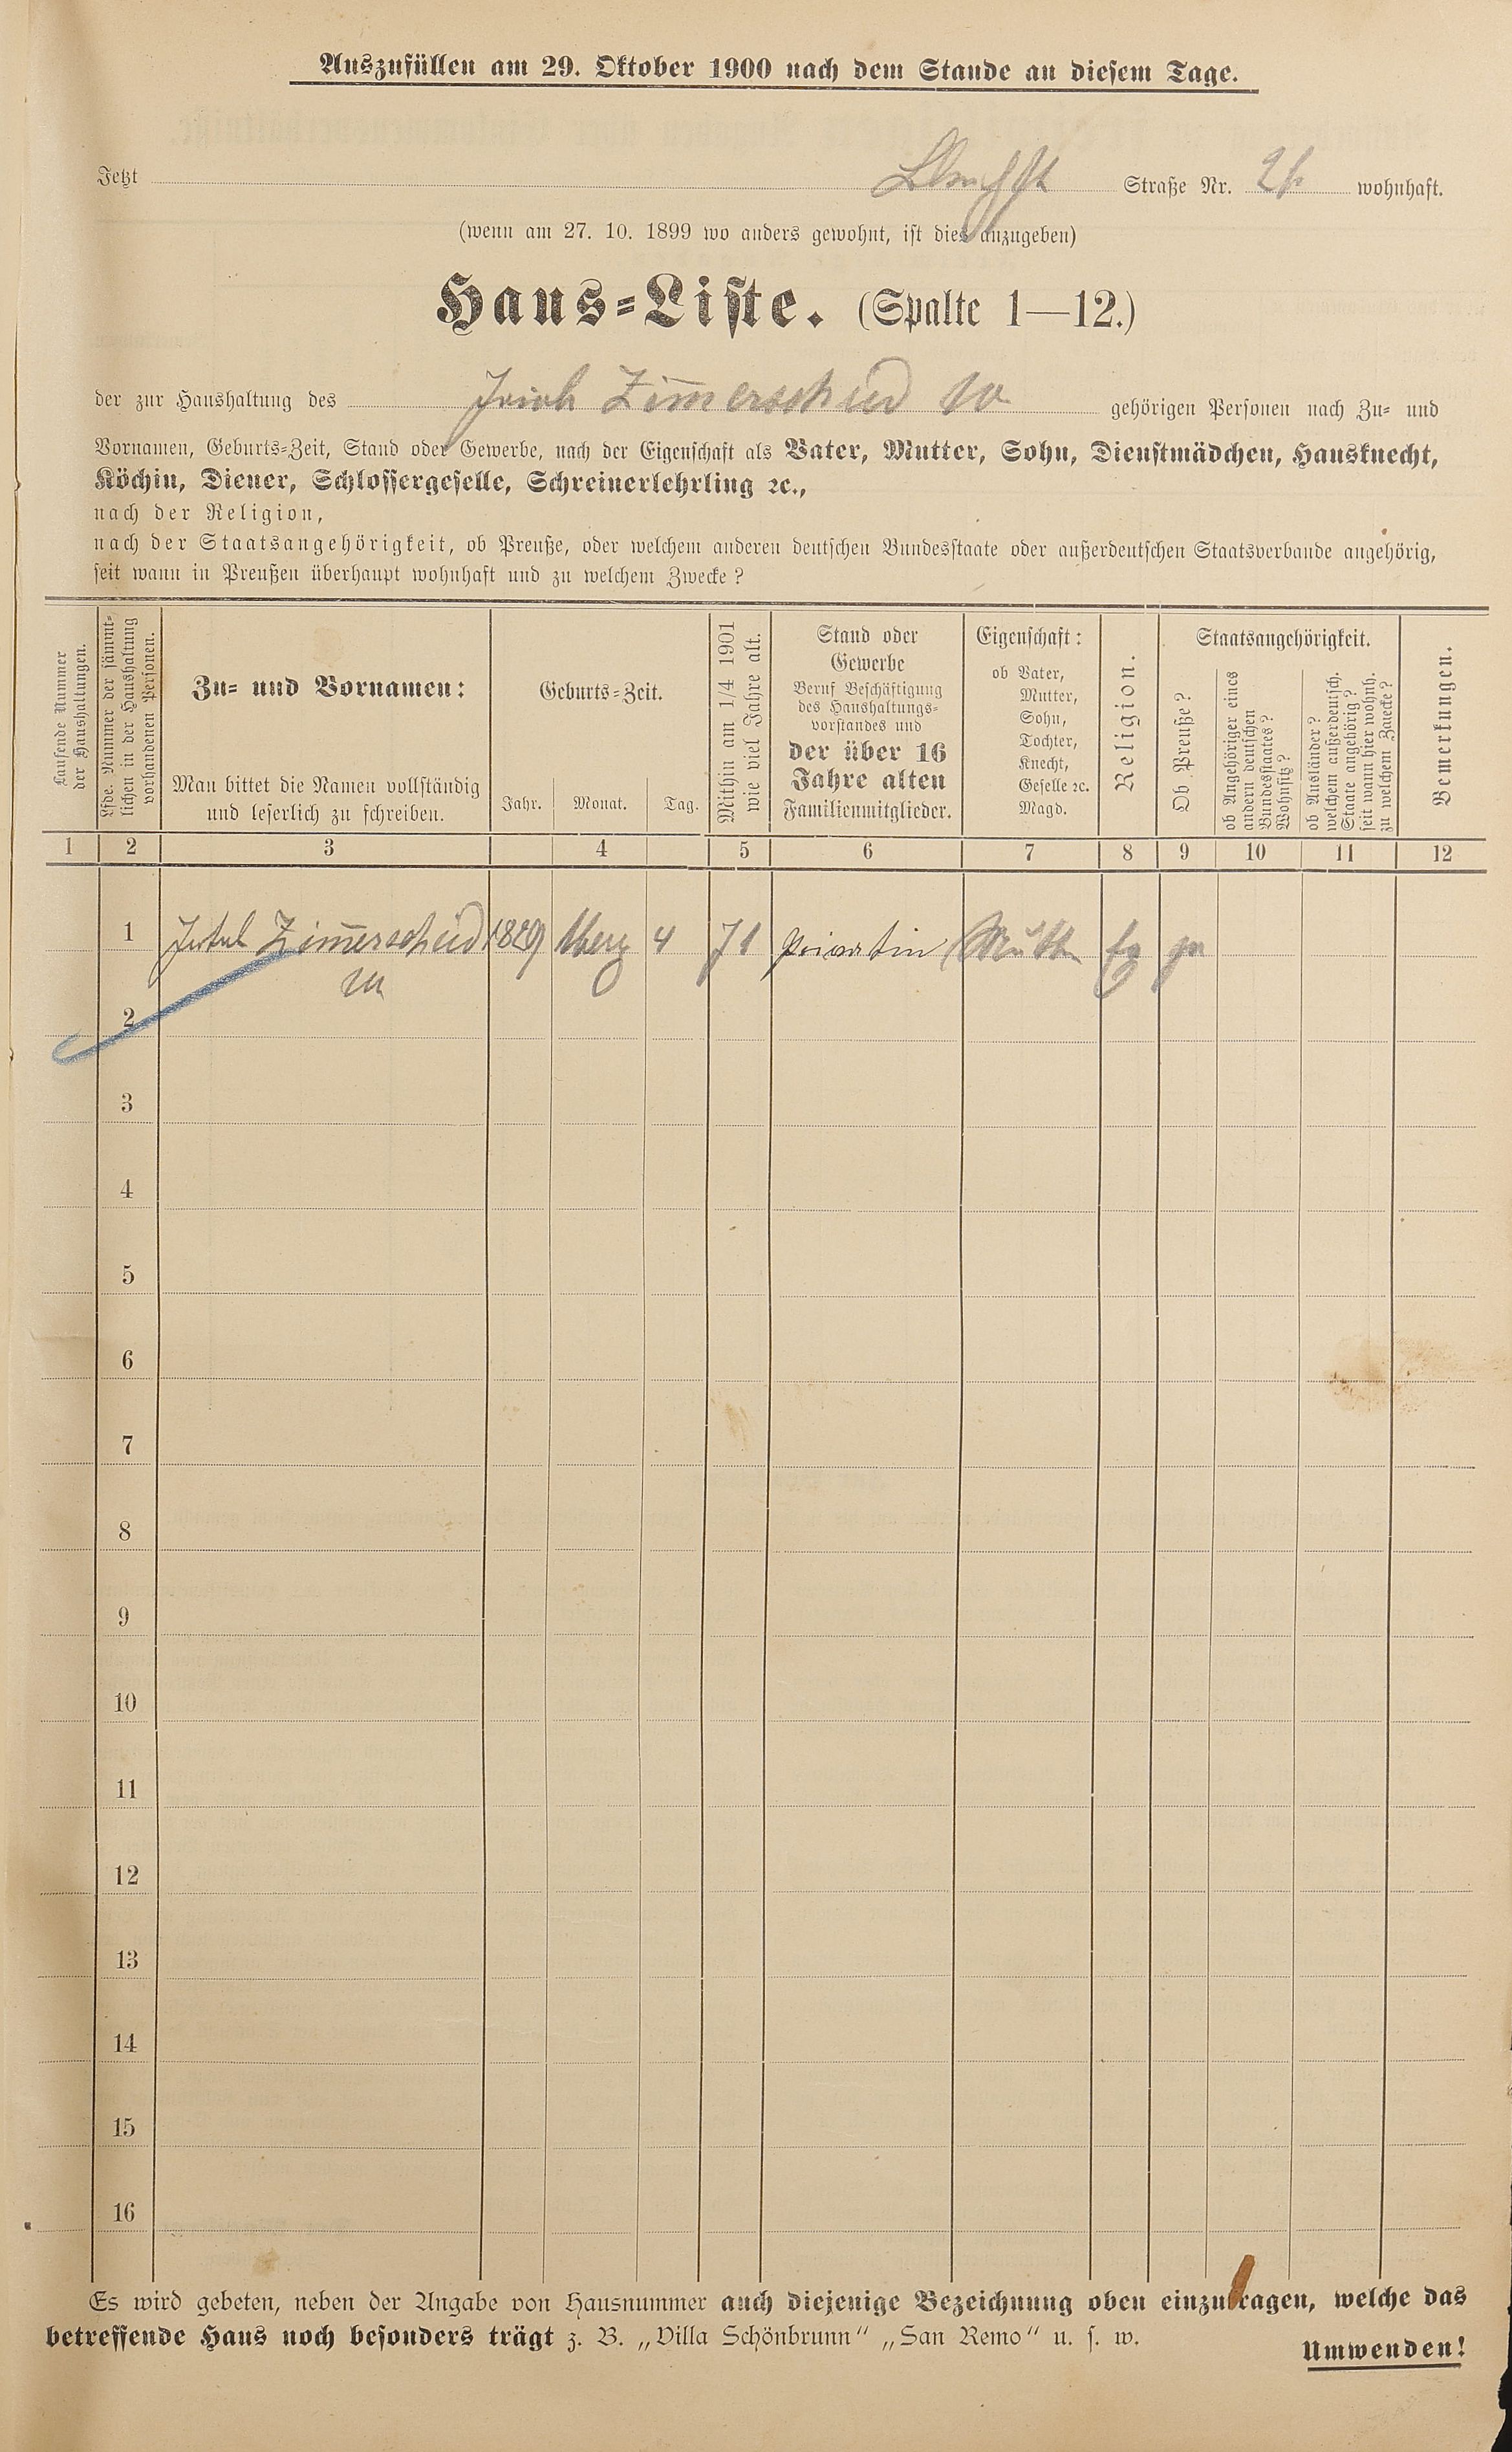 Auszufüllen am 29. Oktober 1900 nach dem Stande an diesem Tage.
Jetzt Straße Nr. wohnhaft.
(wenn am 27. 10. 1899 wo anders gewohnt, ist dies anzugeben)
Haus=Liste. (Spalte 1—12.)
der zur Haushaltung des Zim̄erscheid gehörigen Personen nach Zu= und
Vornamen, Geburts=Zeit, Stand oder Gewerbe, nach der Eigenschaft als Vater, Mutter, Sohn, Dienstmädchen, Hausknecht,
Köchin, Diener, Schlossergeselle, Schreinerlehrling ꝛc.,
nach der Religion,
nach der Staatsangehörigkeit, ob Preuße, oder welchem anderen deutschen Bundesstaate oder außerdeutschen Staatsverbande angehörig,
seit wann in Preußen überhaupt wohnhaft und zu welchem Zwecke?
Laufende Nummer
der Haushaltungen.
Lfde. Nummer der sämmt=
lichen in der Haushaltung
vorhandenen Personen.
Zu= und Vornamen:
Man bittet die Namen vollständig
und leserlich zu schreiben.
Geburts=Zeit.
Jahr. Monat. Tag.
Mithin am 1/4 1901
wie viel Jahre alt.
Stand oder
Gewerbe
Beruf Beschäftigung
des Haushaltungs=
vorstandes und
der über 16
Jahre alten
Familienmitglieder.
Eigenschaft:
ob Vater,
Mutter,
Sohn,
Tochter,
Knecht,
Geselle ꝛc.
Magd.
Religion.
Staatsangehörigkeit.
Ob Preuße?
ob Angehöriger eines
andern deutschen
Bundesstaates?
Wohnsitz?
ob Ausländer?
welchem außerdeutsch.
Staate angehörig?
seit wann hier wohnh.
zu welchem Zwecke?
Bemerkungen.
1 2 3 4 5 6 7 8 9 10 11 12
1 Zim̄erscheid 1829 4 71 Privatin Mutter
2
3
4
5
6
7
8
9
10
11
12
13
14
15
16
Es wird gebeten, neben der Angabe von Hausnummer auch diejenige Bezeichnung oben einzutragen, welche das
betreffende Haus noch besonders trägt z. B. „Villa Schönbrunn“ „San Remo“ u. s. w.
Umwenden!